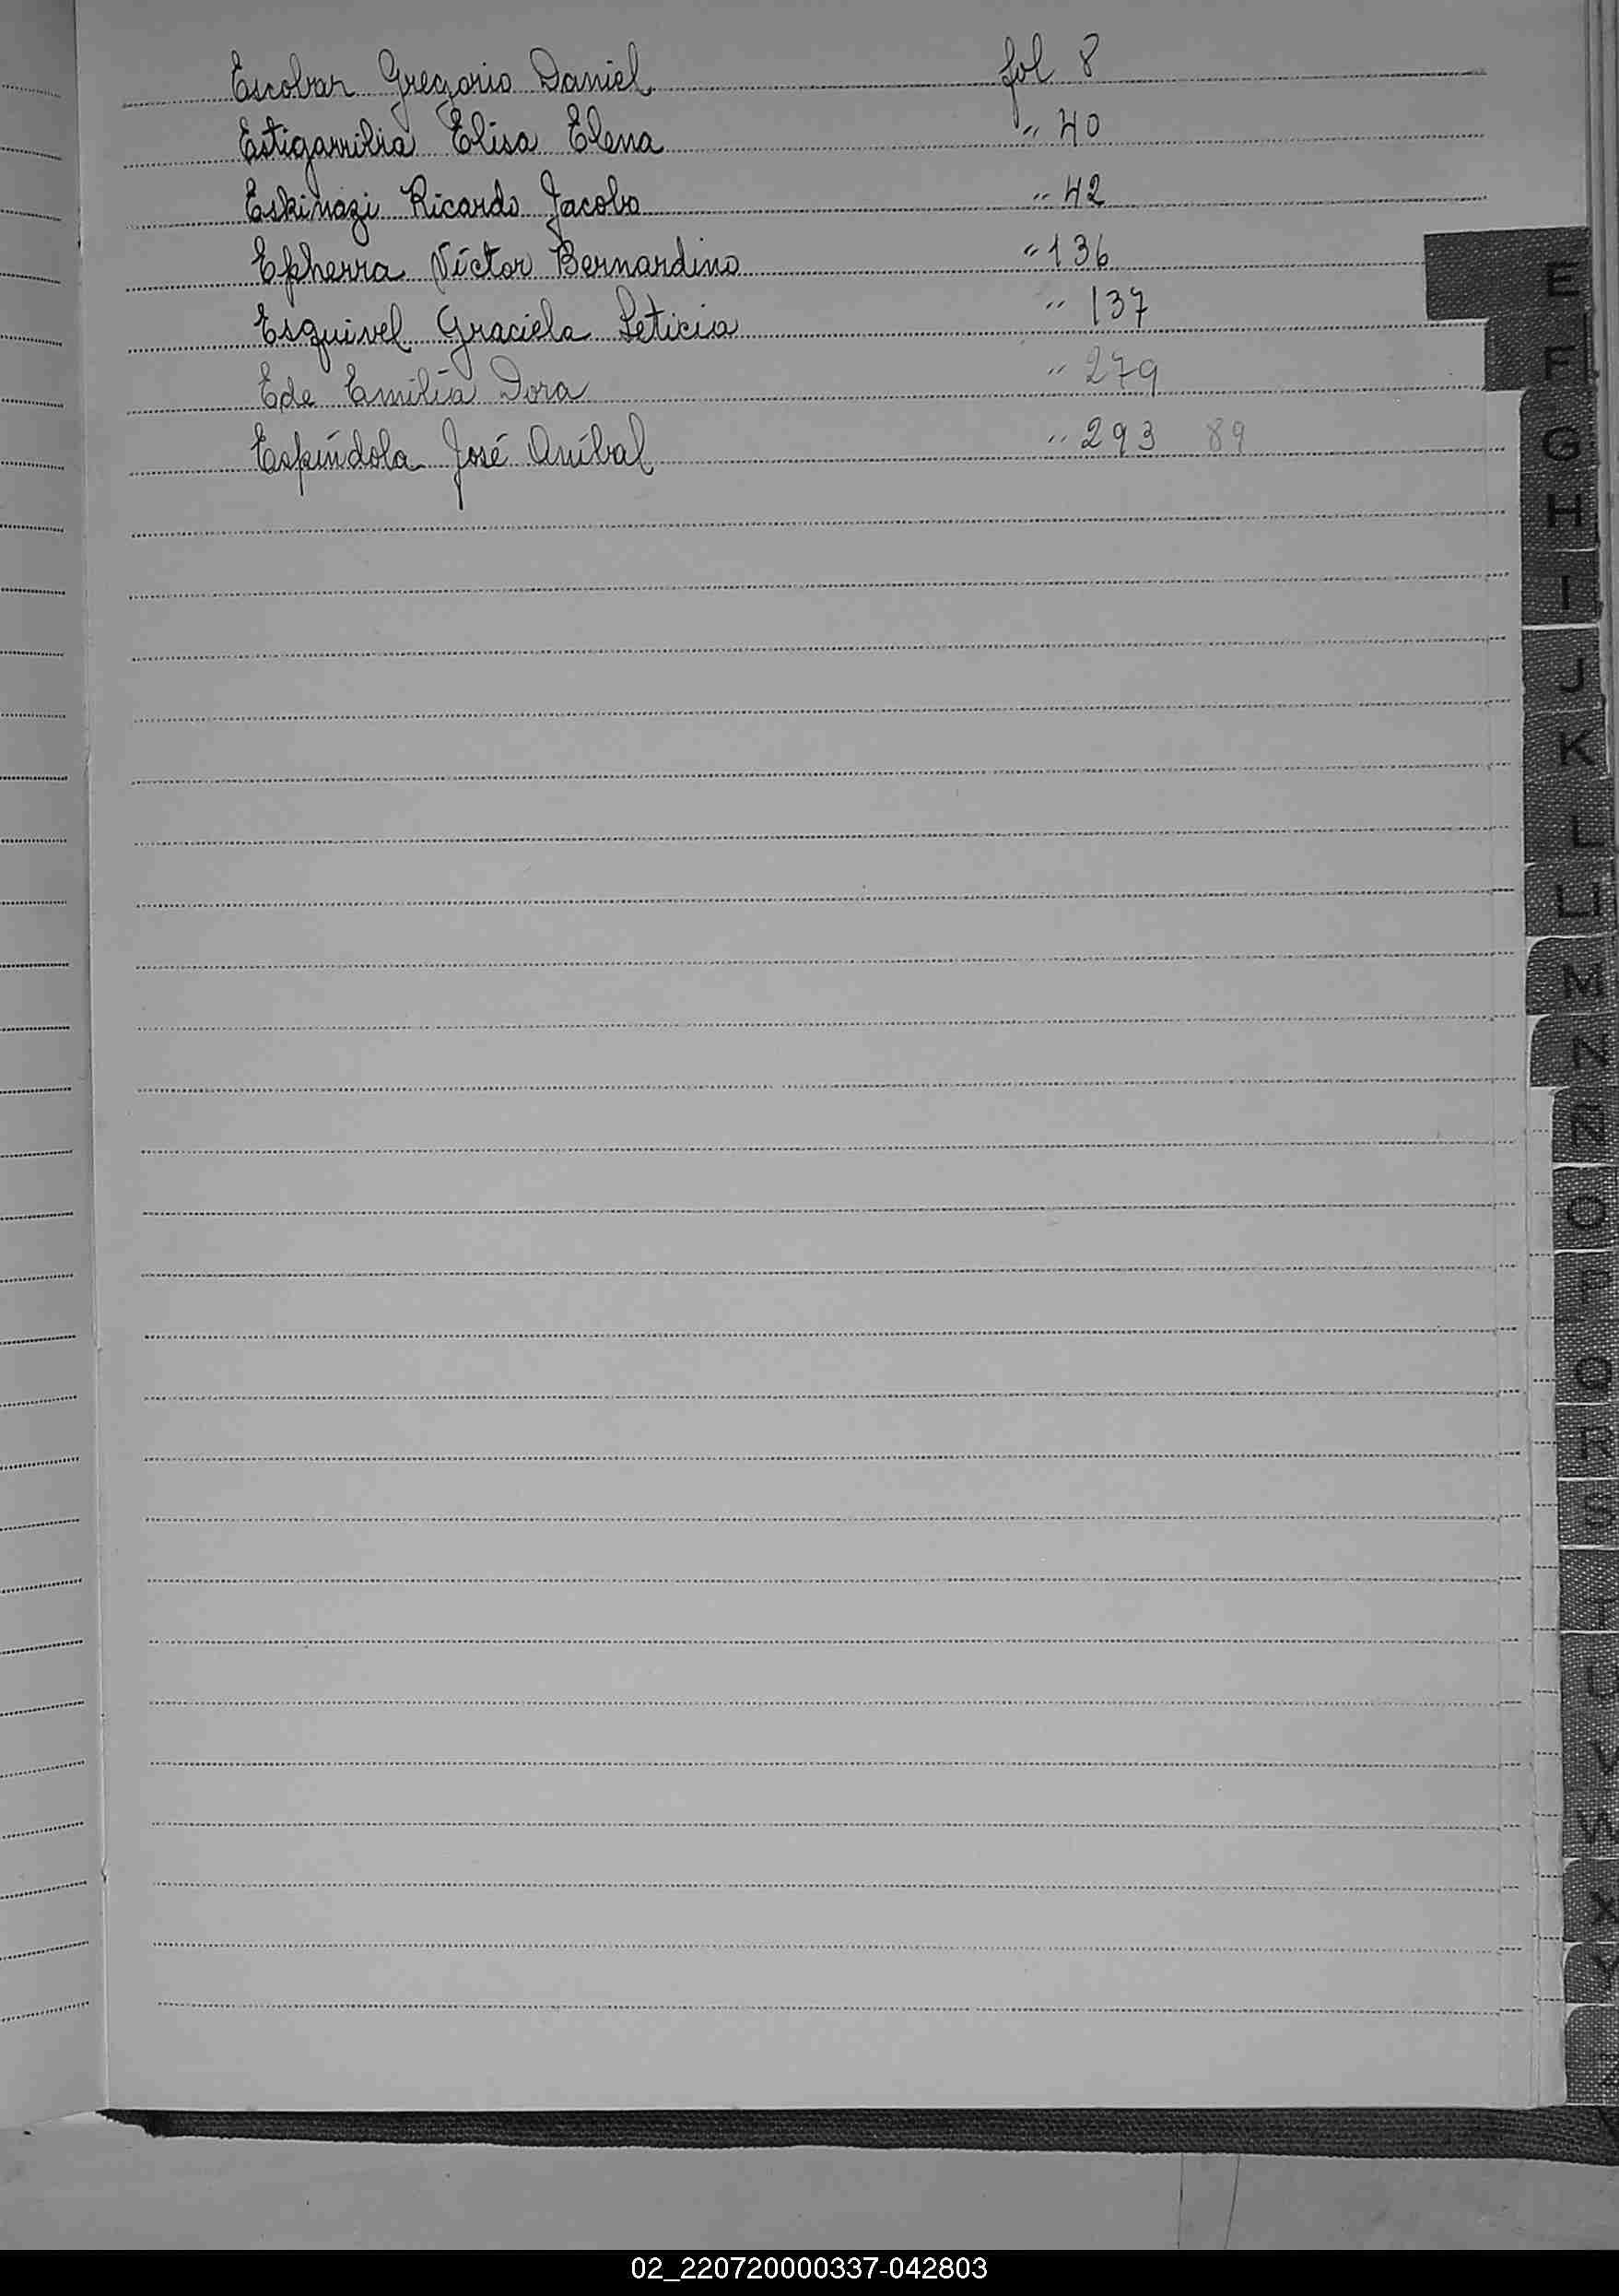 Escobar Gregorio Daniel fol 8
Estigarribia Elisa Elena " 40
Eskinazi Ricardo Jacobo " 42
Epherra Víctor Bernardino " 136
Esquivel Graciela Leticia " 137
Ede Emilia Dora " 279
Espíndola José Aníbal " 293 89
E
F
G
H
I
J
K
L
LL
M
N
Ñ
O
P
Q
R
S
T
U
V
W
X
Y
Z
02_220720000337-042803